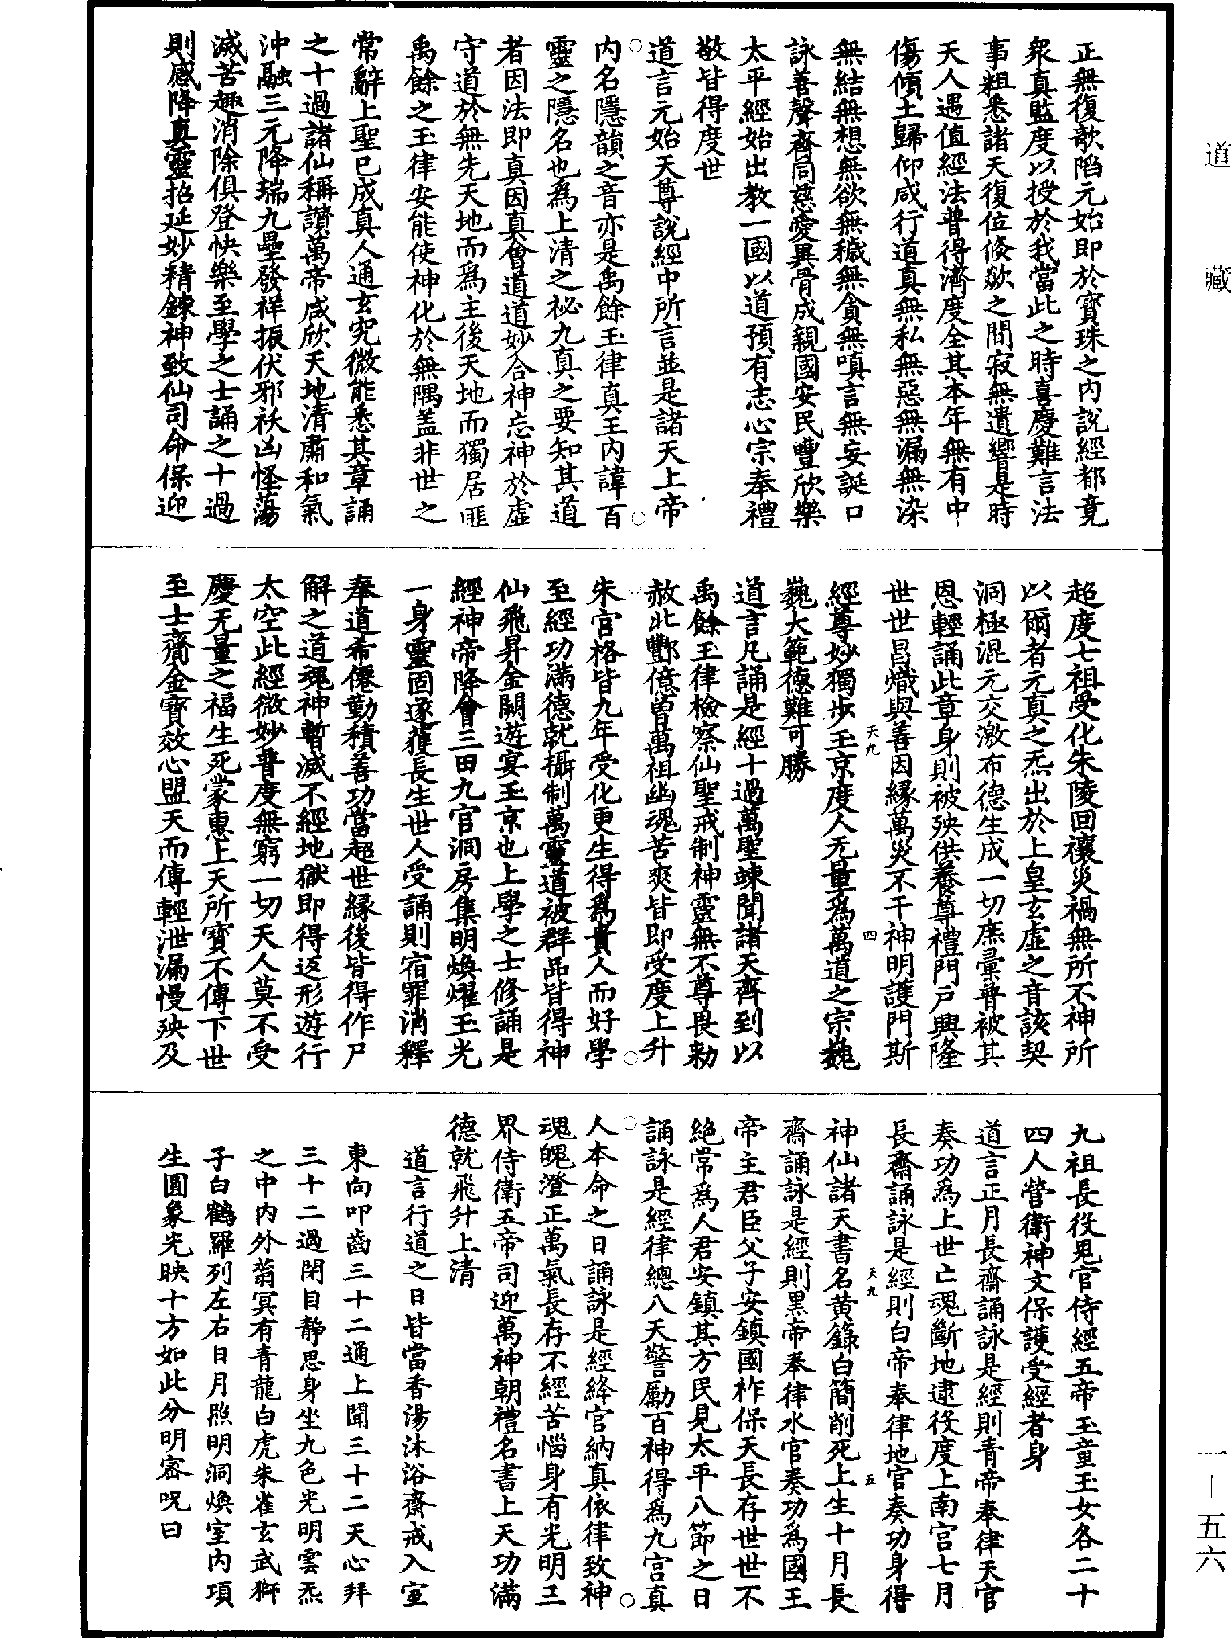 道藏
正無復歆陷元始即於寶珠之內說經都竟
衆真監度以授於我當此之時喜慶難言法
事粗悉諸天復位倏歘之間寂無遺響是時
天人遇值經法普得濟度全其本年無有中
傷傾土歸仰咸行道真無私無惡無漏無染
無結無想無欲無穢無貪無嗔言無妄誕口
詠善聲齊同慈愛異骨成親國安民豐欣樂
太平經始出教一國以道預有志心宗奉禮
敬皆得度世
道言元始天尊說經中所言並是諸天上帝
內名隱韻之音亦是禹餘玉律真王內諱百
靈之隱名也為上清之祕九真之要知其道
者因法即真因真會道道妙合神忘神於虛
守道於無先天地而為主後天地而獨居匪
禹餘之玉律安能使神化於無隅蓋非世之
常辭上聖已成真人通玄究微能悉其章誦
之十過諸仙稱讚萬帝咸欣天地清肅和氣
沖融三元降瑞九壘發祥振伏邪祅凶怪蕩
滅苦趣消除俱登快樂至學之士誦之十過
則感降真靈招延妙精鍊神致仙司命保迎
超度七祖受化朱陵回禳災禍無所不神所
以爾者元真之炁出於上皇玄虛之音該契
洞極混元交激布德生成一切庶彙普被其
恩輕誦此章身則被殃供養尊禮門戶興隆
世世昌熾與善因緣萬災不干神明護門斯
經尊妙獨步玉京度人无量為萬道之宗巍
巍大範德難可勝
天九
四
道言凡誦是經十過萬聖竦聞諸天齊到以
禹餘玉律檢察仙聖戒制神靈無不尊畏勑
赦北酆億曾萬祖幽魂苦爽皆即受度上升
朱宮格皆九年受化更生得為貴人而好學
至經功滿德就攝制萬靈道被群品皆得神
仙飛昇金闕遊宴玉京也上學之士修誦是
經神帝降會三田九宮洞房集明煥耀玉光
一身靈固遂獲長生世人受誦則宿罪消釋
奉道希僊勤積善功當超世緣後皆得作尸
解之道魂神暫滅不經地獄即得返形遊行
太空此經微妙普度無窮一切天人莫不受
慶无量之福生死蒙惠上天所寶不傳下世
至士齎金寶效心盟天而傳輕泄漏慢殃及
九祖長役鬼官侍經五帝玉童玉女各二十
四人營衛神文保護受經者身
道言正月長齋誦詠是經則青帝奉律天官
奏功為上世亡魂斷地逮役度上南宮七月
長齋誦詠是經則白帝奉律地官奏功身得
神仙諸天書名黃籙白簡削死上生十月長
天九
五
齋誦詠是經則黑帝奉律水官奏功為國王
帝主君臣父子安鎮國祚保天長存世世不
絕常為人君安鎮其方民見太平八節之日
誦詠是經律總八天警勵百神得為九宮真
人本命之日誦詠是經絳官納真依律致神
魂魄澄正萬氣長存不經苦惱身有光明三
界侍衛五帝司迎萬神朝禮名書上天功滿
德就飛升上清
道言行道之日皆當香湯沐浴齋戒入室
東向叩齒三十二通上聞三十二天心拜
三十二過閉目靜思身坐九色光明雲炁
之中內外蓊冥有青龍白虎朱雀玄武獅
子白鶴羅列左右日月照明洞煥室內項
生圓象光映十方如此分明密呪曰
一-五六